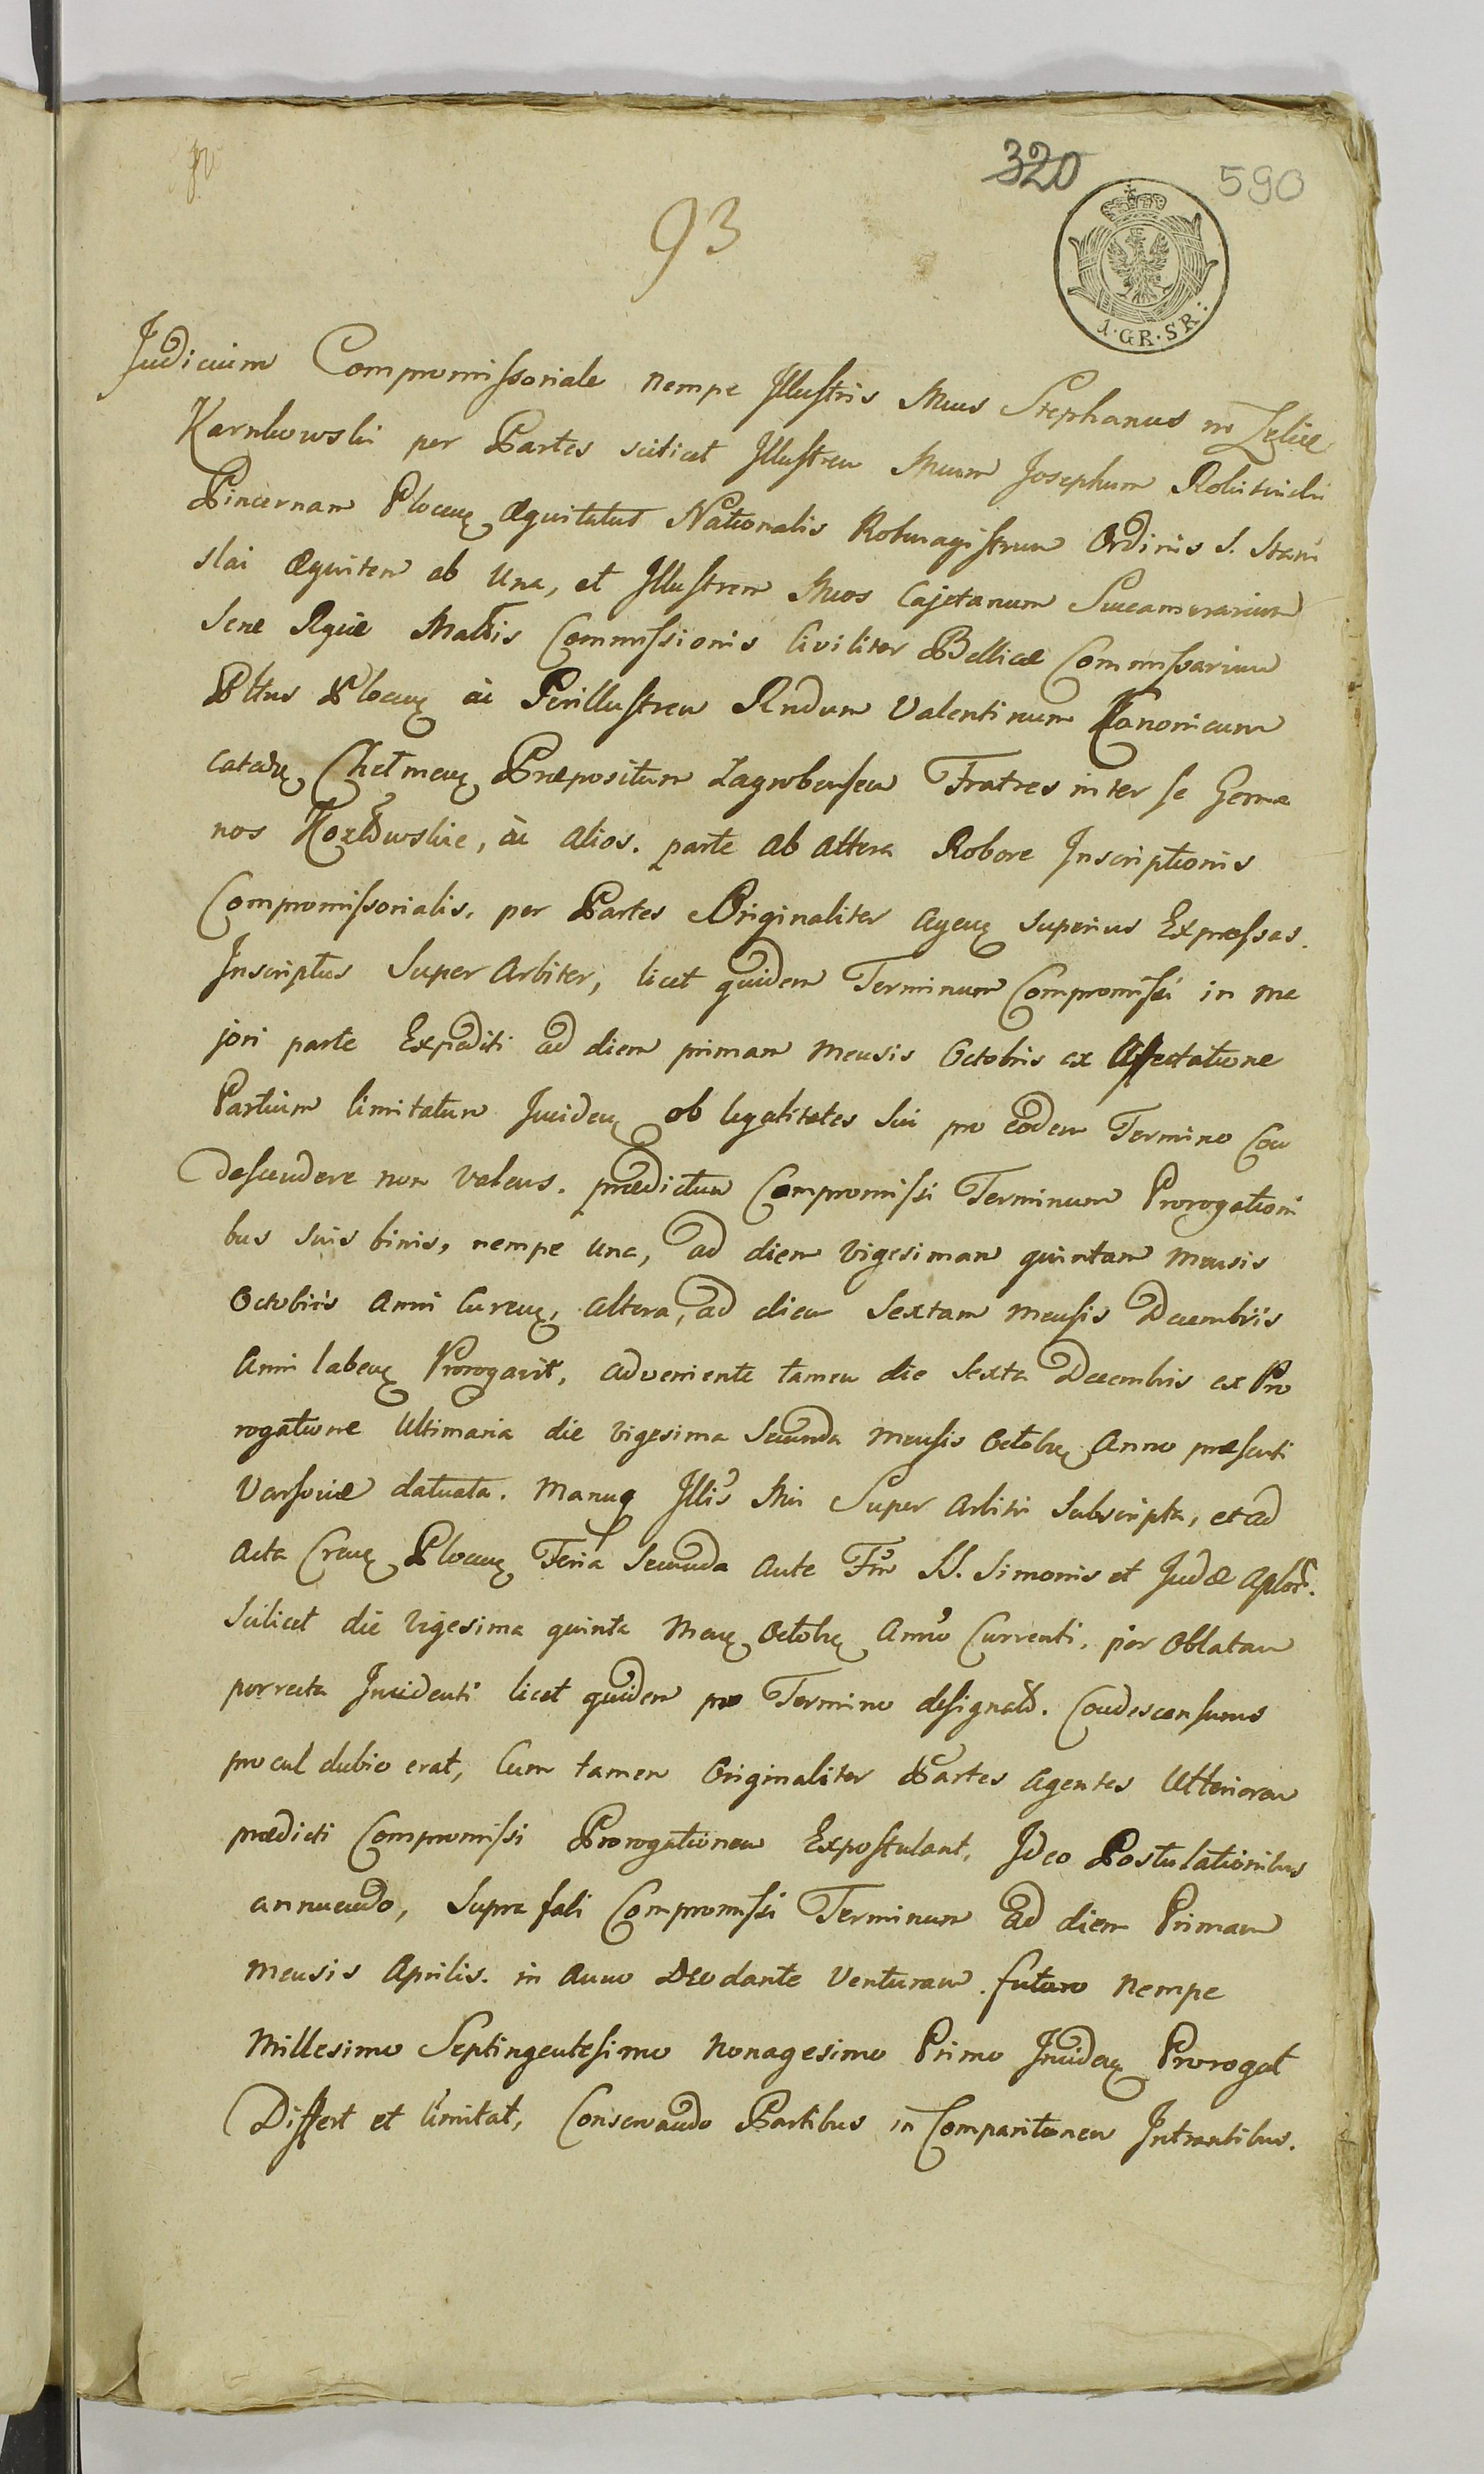 320 590
93
1·GR·SR:
Judicium Compromissoriale nempe Illustris Mcus Stephanus in
Karnkowski per Partes scilicet Illustrem Mcum Josephum
Pincernam Plocen Æquitatus Nationalis Rotmagistrum Ordinis S. Stani
slai Æquitem ab Una, et Illustrem Mcos Cajetanum Succamerarium
Sere Rgiæ Mattis Commissionis Civiliter Bellicæ Commissarium
Plttus Plocen ac Perillustrem Rndum Valentinum Canonicum
Catedr Chełmen Præpositum Zagrobensem Fratres inter se Germa
nos Kozłowskie, ac alios. parte ab altera Robore Inscriptionis
Compromissorialis. per Partes Originaliter Agen superius Expressas.
Inscriptus Super Arbiter, licet quidem Terminum Compromissi in ma
jori parte Expediti ad diem primam Mensis Octobris ex Affectatione
Partium limitatum Inciden ob legalitates sui pro eodem Termino Con
descendere non valens. prædictum Compromissi Terminum Prorogationi
bus suis binis, nempe una, ad diem vigesimam quintam Mensis
Octobris Anni Curren, altera, ad diem Sextam Mensis Decembris
Anni laben Prorogavit, adveniente tamen die Sexta Decembris ex Pro
rogatione Ultimaria die vigesima Secunda Mensis Octobr Anno præsenti
Varsoviæ datuata. Manuq Illis Mci Super Arbitri Subscripta, et ad
Acta Cren Plocen Feria Secunda Ante Ftm SS. Simonis et Judæ Aplor.
Scilicet die vigesima quinta Men Octobr Anno Currenti. per Oblatam
porrecta Incidenti licet quidem pro Termino designato. Condescensurus
procul dubio erat, Cum tamen Originaliter Partes Agentes Ulteriorem
prædicti Compromissi Prorogationem Expostulant, Ideo Postulationibus
annuendo, Supra fati Compromissi Terminum Ad diem Primam
Mensis Aprilis. in Anno Deo dante Venturam. futuro Nempe
Millesimo Septingentesimo Nonagesimo Primo Inciden Prorogat
Differt et limitat, Conservando Partibus in Comparitionem Intrantibus.